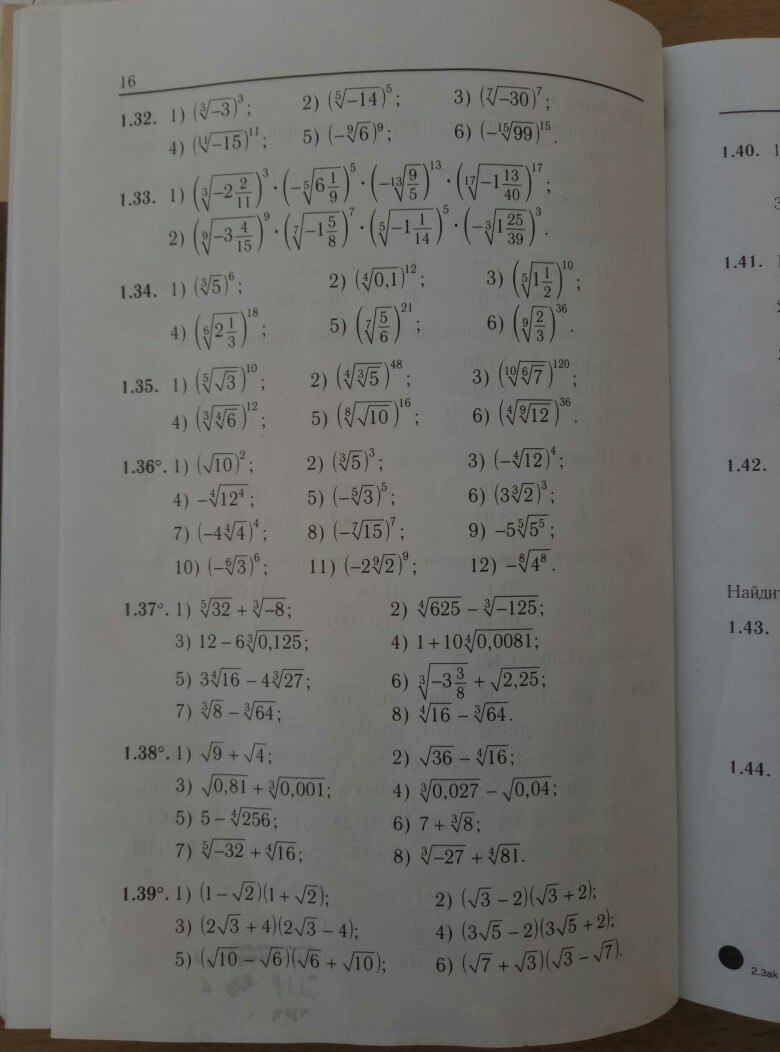 16
1.32. 1) (∛−3)³; 2) (⁵√−14)⁵; 3) (⁷√−30)⁷;
4) (¹¹√−15)¹¹; 5) (−⁹√6)⁹; 6) (−¹⁵√99)¹⁵.
1.33. 1) (∛(−2 2/11))³ · (−⁵√(6 1/9))⁵ · (−¹³√(9/5))¹³ · (¹⁷√(−1 13/40))¹⁷;
2) (⁹√(−3 4/15))⁹ · (⁷√(−1 5/8))⁷ · (⁵√(−1 1/14))⁵ · (−∛(1 25/39))³.
1.34. 1) (∛5)⁶; 2) (⁴√0,1)¹²; 3) (⁵√(1 1/2))¹⁰;
4) (⁶√(2 1/3))¹⁸; 5) (⁷√(5/6))²¹; 6) (⁹√(2/3))³⁶.
1.35. 1) (⁵√√3)¹⁰; 2) (⁴√∛5)⁴⁸; 3) (¹⁰√⁶√7)¹²⁰;
4) (∛⁴√6)¹²; 5) (⁸√√10)¹⁶; 6) (⁴√⁹√12)³⁶.
1.36°. 1) (√10)²; 2) (∛5)³; 3) (−⁴√12)⁴;
4) −⁴√12⁴; 5) (−⁵√3)⁵; 6) (3∛2)³;
7) (−4⁴√4)⁴; 8) (−⁷√15)⁷; 9) −5⁵√5⁵;
10) (−⁶√3)⁶; 11) (−2⁹√2)⁹; 12) −⁸√4⁸.
1.37°. 1) ⁵√32 + ∛−8; 2) ⁴√625 − ∛−125;
3) 12 − 6∛0,125; 4) 1 + 10⁴√0,0081;
5) 3⁴√16 − 4∛27; 6) ∛(−3 3/8) + √2,25;
7) ∛8 − ∛64; 8) ⁴√16 − ∛64.
1.38°. 1) √9 + √4; 2) √36 − ⁴√16;
3) √0,81 + ∛0,001; 4) ∛0,027 − √0,04;
5) 5 − ⁴√256; 6) 7 + ∛8;
7) ⁵√−32 + ⁴√16; 8) ∛−27 + ⁴√81.
1.39°. 1) (1 − √2)(1 + √2); 2) (√3 − 2)(√3 + 2);
3) (2√3 + 4)(2√3 − 4); 4) (3√5 − 2)(3√5 + 2);
5) (√10 − √6)(√6 + √10); 6) (√7 + √3)(√3 − √7).
1.40. 1
1.41.
1.42.
Найди
1.43.
1.44.
2.Зак